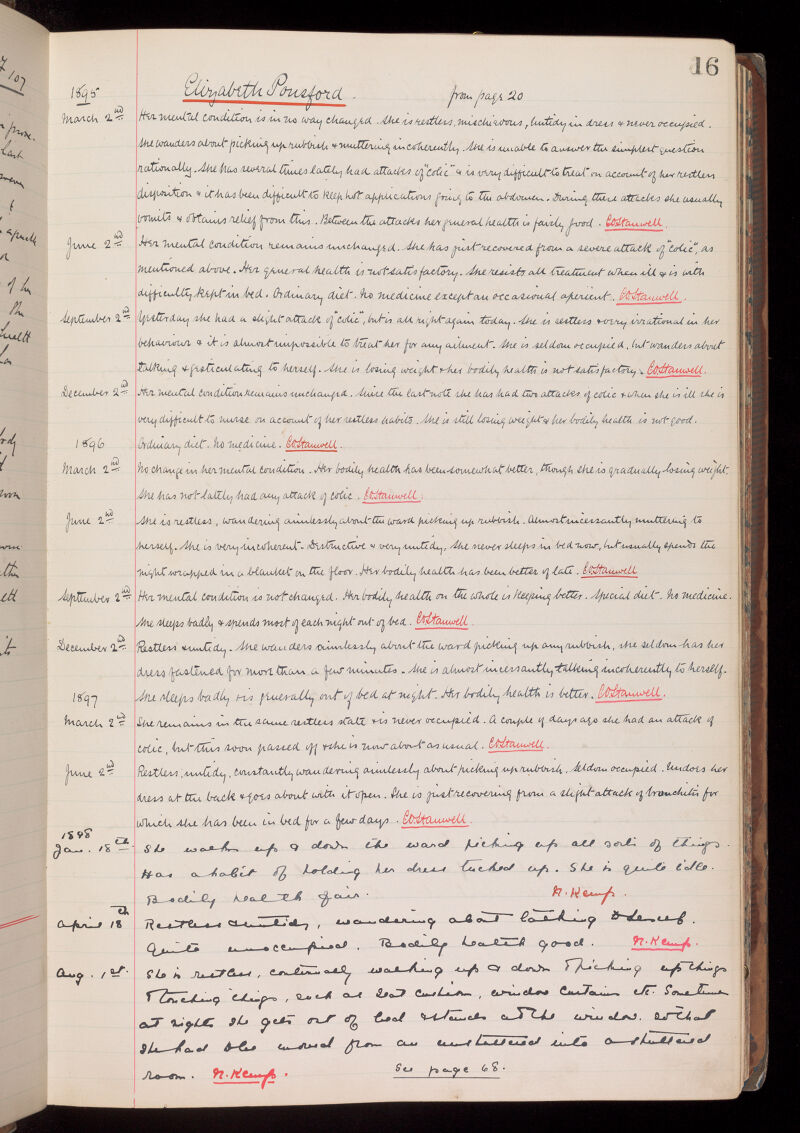 16
1895 Elizabeth Ponsford. from page 20
March 2nd Her mental condition is in no way changed. She is restless, mischievous, untidy in dress & never occupied.
She wanders about picking up rubbish & muttering incoherently. She is unable to answer the simplest question
rationally. She has several times lately had attacks of "colic" & is very difficult to treat on account of her restless
disposition & it has been difficult to keep hot applications going to the abdomen. During these attacks she usually
vomits & obtains relief from this. Between the attacks her general health is fairly good. C.O. Stanwell.
June 2nd Her mental condition remains unchanged. She has just recovered from a severe attack of "colic", as
mentioned above. Her general health is not satisfactory. She resists all treatment when ill & is with
difficulty kept in bed. Ordinary diet. No medicine except an occasional aperient. C.O. Stanwell.
September 2nd Yesterday she had a slight attack of "colic", but is all right again today. She is restless & very irrational in her
behaviour & it is almost impossible to treat her for any ailment. She is seldom occupied, but wanders about
talking & gesticulating to herself. She is losing weight & her bodily health is not satisfactory. C.O. Stanwell.
December 2nd Her mental condition remains unchanged. Since the last note she has had two attacks of colic & when she is ill she is
very difficult to nurse on account of her restless habits. She is still losing weight & her bodily health is not good.
1896 Ordinary diet. No medicine. C.O. Stanwell.
March 2nd No change in her mental condition. Her bodily health has been somewhat better, though she is gradually losing weight.
She has not lately had any attack of colic. C.O. Stanwell.
June 2nd She is restless, wandering aimlessly about the ward picking up rubbish. Almost incessantly muttering to
herself. She is very incoherent. Destructive & very untidy. She never sleeps in bed now, but usually spends the
night wrapped in a blanket on the floor. Her bodily health has been better of late. C.O. Stanwell
September 2nd Her mental condition is not changed. Her bodily health on the whole is keeping better. Special diet. No medicine.
She sleeps badly & spends most of each night out of bed. C.O. Stanwell.
December 2nd Restless & untidy. She wanders aimlessly about the ward picking up any rubbish, she seldom has her
dress fastened for more than a few minutes. She is almost incessantly talking incoherently to herself.
1897 She sleeps badly & is generally out of bed at night. Her bodily health is better. C.O. Stanwell.
March 2nd She remains in the same restless state & is never occupied. A couple of days ago she had an attack of
colic, but this soon passed off & she is now about as usual. C.O. Stanwell.
June 2nd Restless, untidy, constantly wandering aimlessly about picking up rubbish. Seldom occupied. Undoes her
dress at the back & goes about with it open. She is just recovering from a slight attack of bronchitis for
which she has been in bed for a few days. C.O. Stanwell.
1898
Jan. 18th She walks up & down the ward picking up all sorts of things.
Has a habit of holding her dress tucked up. She is quite idle.
Bodily health fair. N. Kemp.
April 18th Restless & untidy, wandering about talking to herself.
Quite unoccupied. Bodily health good. N. Kemp.
Aug. 1st. She is restless, continually walking up & down & picking up things
& touching things, such as seat cushion, window curtains etc. Sometimes
at nights she gets out of bed & stands at the window. So that
she had to be moved from an unshuttered into a shuttered
room. N. Kemp. See page 68.